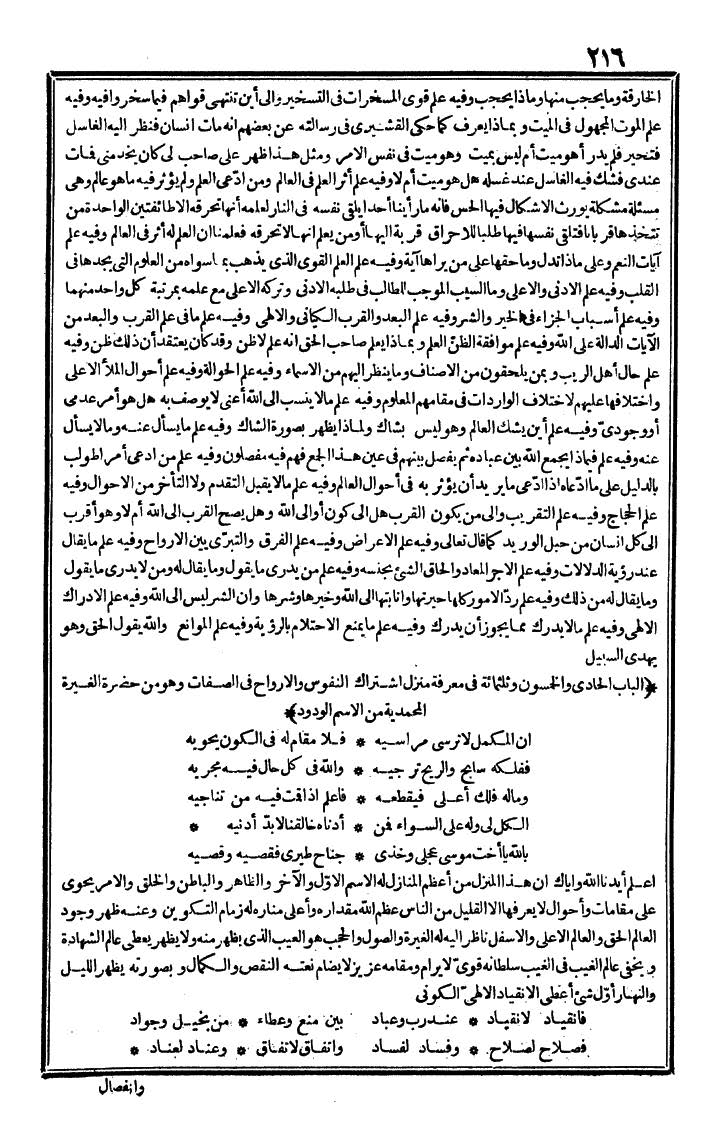 ٢١٦
الخارقة وما يحجب منها وماذا يحجب وفيه علم قوى المسخرات فى التسخير والى أين تنتهى قواهم فيما سخروا فيه وفيه
علم الموت المجهول فى الميت و بماذا يعرف كما حكى القشيرى فى رسالته عن بعضهم انه مات انسان فنظر اليه الغاسل
فتحير فلم يدر أهو ميت أم ليس بميت وهو ميت فى نفس الامر ومثل هذا ظهر على صاحب لى كان يخدمنى فمات
عندى فشك فيه الغاسل عند غسله هل هو ميت أم لا وفيه علم أثر العلم فى العالم ومن ادّعى العلم ولم يؤثر فيه ما هو عالم وهى
مسئلة مشكلة يورث الاشكال فيها الحس فانه ما رأينا أحدا يلقى نفسه فى النار لعلمه أنها تحرقه الا طائفتين الواحدة من
تتخذها قربانا فتلقى نفسها فيها طلبا للاحراق قربة اليها أو من يعلم انها لا تحرقه فعلمنا ان العلم له أثر فى العالم وفيه علم
آيات النعم وعلى ماذا تدل وما حقها على من يراها آية وفيه علم العلم القوى الذى يذهب بما سواه من العلوم التى يجدها فى
القلب وفيه علم الادنى والاعلى وما السبب الموجب للطالب فى طلبه الادنى وتركه الاعلى مع علمه بمرتبة كل واحد منهما
وفيه علم أسباب الجزاء فى الخير والشر وفيه علم البعد والقرب الكيانى والالهى وفيه علم ما فى علم القرب والبعد من
الآيات الدالة على الله وفيه علم موافقة الظنّ العلم و بماذا يعلم صاحب الحق انه علم لا ظن وقد كان يعتقد أن ذلك ظن وفيه
علم حال أهل الريب و بمن يلحقون من الاصناف وما ينظر اليهم من الاسماء وفيه علم الحوالة وفيه علم أحوال الملأ الاعلى
واختلافها عليهم لاختلاف الواردات فى مقامهم المعلوم وفيه علم ما لا ينسب الى الله أعنى لا يوصف به هل هو أمر عدمى
أو وجودىّ وفيه علم أين يشك العالم وهو ليس بشاك ولماذا يظهر بصورة الشاك وفيه علم ما يسأل عنه وما لا يسأل
عنه وفيه علم فيماذا يجمع الله بين عباده ثم يفصل بينهم فى عين هذا الجمع فهم فيه مفصلون وفيه علم من ادعى أمرا طولب
بالدليل على ما ادّعاه اذا ادّعى ما يريد أن يؤثر به فى أحوال العالم وفيه علم ما لا يقبل التقدم ولا التأخر من الاحوال وفيه
علم الحجاج وفيه علم التقريب والى من يكون القرب هل الى كون أو الى الله وهل يصح القرب الى الله أم لا وهو أقرب
الى كل انسان من حبل الوريد كما قال تعالى وفيه علم الاعراض وفيه علم الفرق والتبرّى بين الارواح وفيه علم ما يقال
عند رؤية الدلالات وفيه علم الاجر المعاد والحاق الشئ بجنسه وفيه علم من يدرى ما يقول وما يقال له ومن لا يدرى ما يقول
وما يقال له من ذلك وفيه علم ردّ الامور كلها حيرتها وانابتها الى الله وخيرها وشرها وان الشر ليس الى الله وفيه علم الادراك
الالهى وفيه علم ما لا يدرك مما يجوز أن يدرك وفيه علم ما يمنع الاحتلام بالرؤية وفيه علم الموانع والله يقول الحق وهو
يهدى السبيل
﴿الباب الحادى والخمسون وثلثمائة فى معرفة منزل اشتراك النفوس والارواح فى الصفات وهو من حضرة الغيرة
المحمدية من الاسم الودود﴾
ان المكمل لا ترسى مراسيه * فلا مقام له فى الكون يحويه
ففلكه سابح والريح تزجيه * والله فى كل حال فيه مجريه
وماله فلك أعلى فيقطعه * فاعلم اذا قت فيه من تناجيه
الكل لى وله على السواء فن * أدناه خالقنا لا بدّ أدنيه *
بالله يا أخت موسى عجلى وخذى * جناح طيرى فقصيه وقصيه
اعلم أيدنا الله واياك ان هذا المنزل من أعظم المنازل له الاسم الاوّل والآخر والظاهر والباطن والخلق والامر يحوى
على مقامات وأحوال لا يعرفها الا القليل من الناس عظم الله مقداره وأعلى مناره له زمام التكوين وعنه ظهر وجود
العالم الحق والعالم الاعلى والاسفل ناظر اليه له الغيرة والصول والحجب هو العيب الذى يظهر منه ولا يظهر يعطى عالم الشهادة
و يخفى عالم الغيب فى الغيب سلطانه قوىّ لا يرام ومقامه عزيز لا يضام نعته النقص والكمال و بصورته يظهر الليل
والنهار أوّل شئ أعطى الانقياد الالهىّ الكونى
فانقياد لانقياد * عند رب وعباد بين منع وعطاء * من بخيل وجواد
فصلاح لصلاح * وفساد لفساد واتفاق لاتفاق * وعناد لعناد *
وانفصال